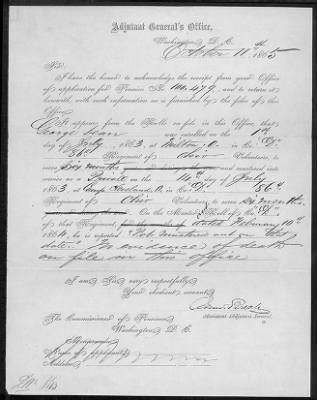 Adjutant General's Office,
Washington, D. C.
October 11th 1865
Sir:
I have the honor to acknowledge the receipt from your Office
of application for Pension No. 100.479, and to return it
herewith, with such information as is furnished by the files of this
Office.
It appears from the Rolls on file in this Office, that
George was enrolled on the 1st
day of July, 1863, at O. in Co. "
86th Regiment of Ohio Volunteers, to
serve Six months and mustered into
service as a Private on the 14 day of July
1863, at Camp Cleveland, O. in Co. " 86th
Regiment of Ohio Volunteers, to serve six months
On the Muster Roll of Co. "
of that Regiment, dated February 10th
1864, he is reported mustered out on that
date. No evidence of death
on file in this office
I am Sir, very respectfully,
Your obedient servant,
Assistant Adjutant General.
The Commissioner of Pensions,
Washington, D. C.
Memoranda:
Name of applicant,
Address,